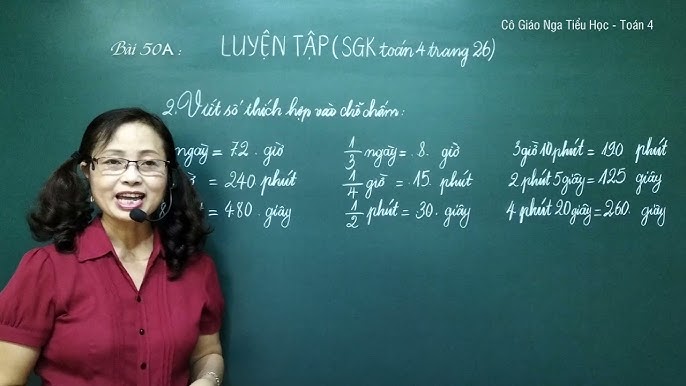 Cô Giáo Nga Tiểu Học - Toán 4
Bài 50A: LUYỆN TẬP (SGK toán 4 trang 26)
2. Viết số thích hợp vào chỗ chấm:
ngày = 72. giờ 1/3 ngày = .8. giờ 3 giờ 10 phút = 190 phút
= 240 phút 1/4 giờ = .15. phút 2 phút 5 giây = 125 giây
8 = 480. giây 1/2 phút = 30. giây 4 phút 20 giây = 260. giây